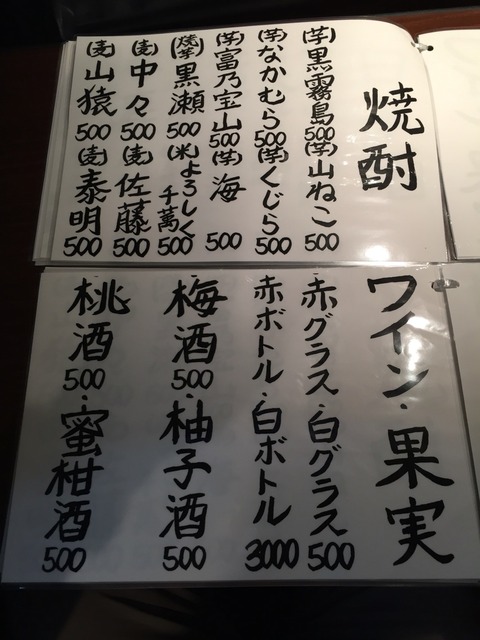 焼酎
(芋)黒霧島500
(芋)山ねこ500
(芋)なかむら500
(芋)くじら500
(芋)富乃宝山500
(芋)海500
(焼芋)黒瀬500
(米)よろしく千萬500
(麦)中々500
(麦)佐藤500
(麦)山猿500
(麦)泰明500
ワイン・果実
・赤グラス・白グラス500
・赤ボトル・白ボトル3000
・梅酒500
・柚子酒500
・桃酒500
・蜜柑酒500